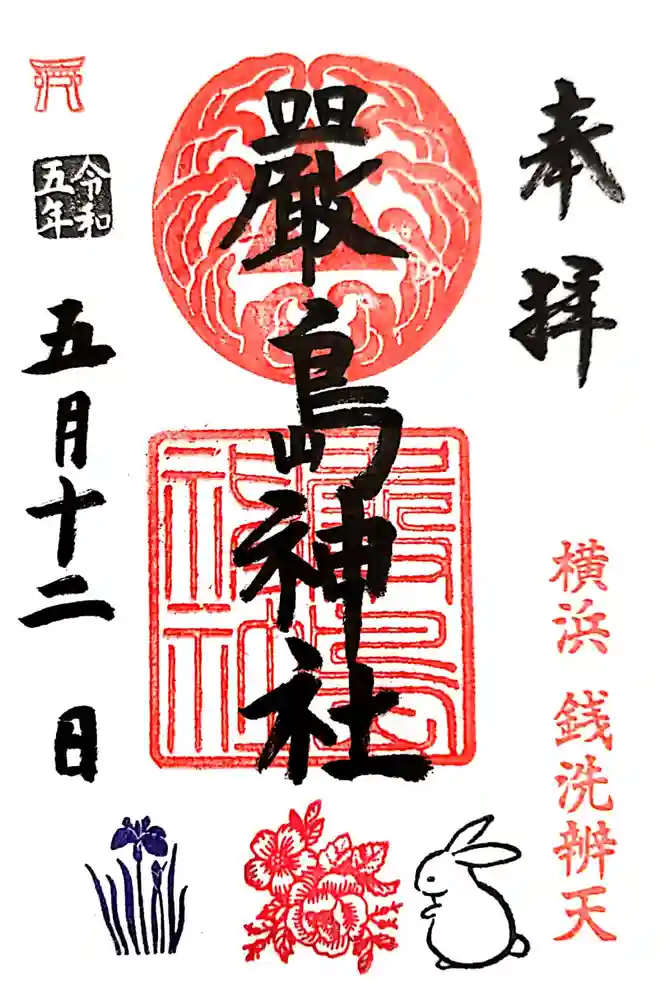 奉拝
横浜 銭洗辨天
嚴島神社
嚴島神社
令和
五年
五月十二日